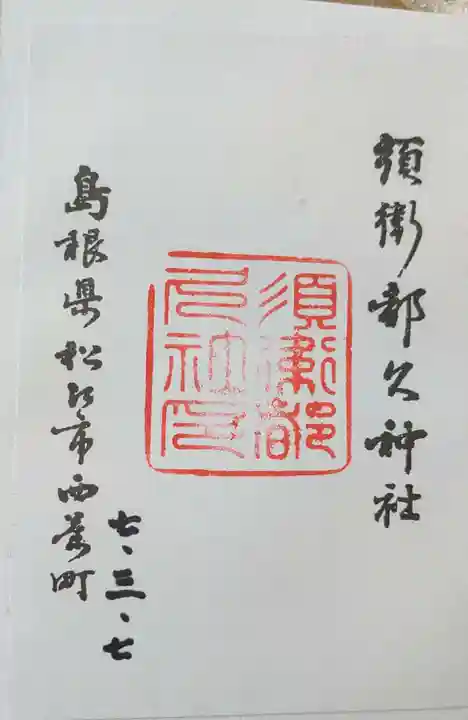 須衛都久神社
須衛都
久神社印
七、三、七
島根県松江市西茶町